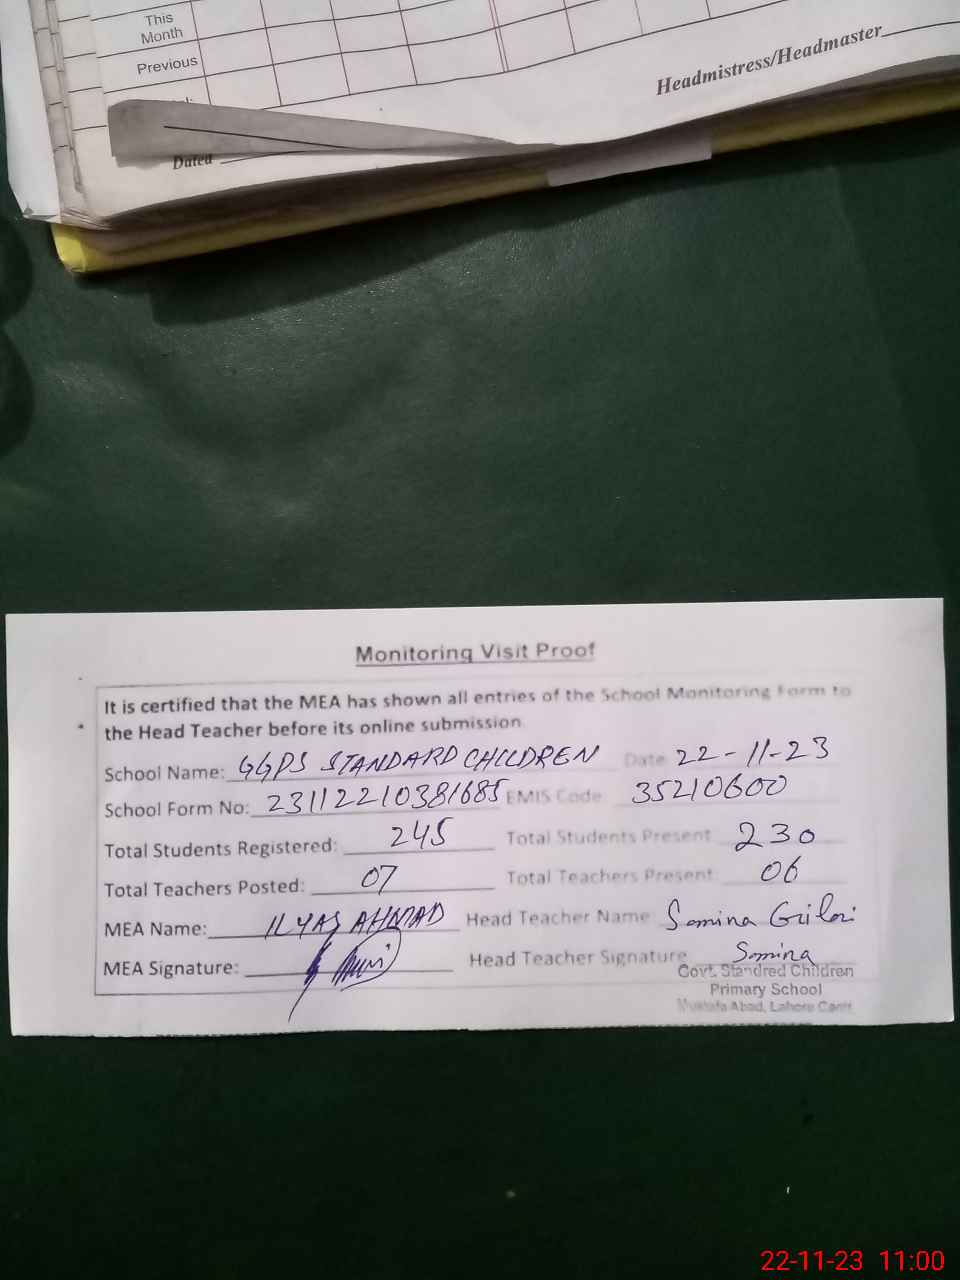 This
Month
Previous
Headmistress/Headmaster
Dated
Monitoring Visit Proof
It is certified that the MEA has shown all entries of the School Monitoring Form to
the Head Teacher before its online submission
School Name: GGPS STANDARD CHILDREN Date 22-11-23
School Form No: 23112210381685 EMIS Code 35210600
Total Students Registered: 245 Total Students Present 230
Total Teachers Posted: 07 Total Teachers Present 06
MEA Name: ILYAS AHMAD Head Teacher Name Samina
MEA Signature: Head Teacher Signature Samina
Govt. Standred Children
Primary School
Mustafa Abad, Lahore Cantt
22-11-23 11:00